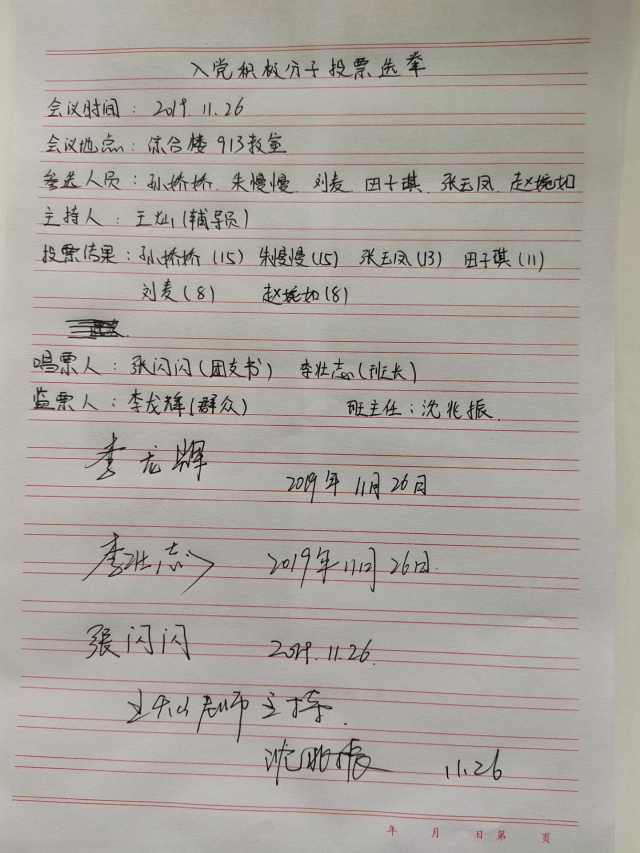 入党积极分子投票选举
会议时间：2019.11.26
会议地点：综合楼 913教室
参选人员：孙娇娇、朱慢慢、刘麦、田子琪、张玉凤、赵婉如
主持人：王灿（辅导员）
投票结果：孙娇娇（15） 朱慢慢（15） 张玉凤（13） 田子琪（11）
刘麦（8） 赵婉如（8）
唱票人：张闪闪（团支书） 李壮志（班长）
监票人：李龙辉（群众） 班主任：沈兆振
李龙辉 2019年11月26日
李壮志 2019年11月26日.
张闪闪 2019.11.26.
王灿老师主持.
沈兆振 11.26
年 月 日第 页